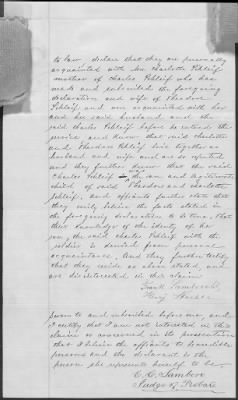 to law declare that they are personally
acquainted with Mrs Charlotte Pehleif
mother of Charles Pehleif who has
made and subscribed the foregoing
declaration and wife of Theodore
Pehleif and are acquainted with her
and her said husband and the
said Charles Pehleif before he entered the
service and know that said Charlotte
and Theodore Pehleif live together as
husband and wife and are so reputed
and they further know that the said
Charles Pehleif was the son and legitimate
child of said Theodore and Charlotte
Pehleif, and affiants further state that
they verily believe the facts stated in
the foregoing declaration to be true, that
their knowledge of the identity of her
son, the said Charles Pehleif with the
soldier is derived from personal
acquaintance. And they further testify
that they reside as above stated, and
are disinterested in this claim
Frank
Sworn to and subscribed before me, and
I certify that I am not interested in this
claim or concerned in the prosecution
that I believe the affiants to be credible
persons and the declarant is the
person she represents herself to be
Judge of Probate